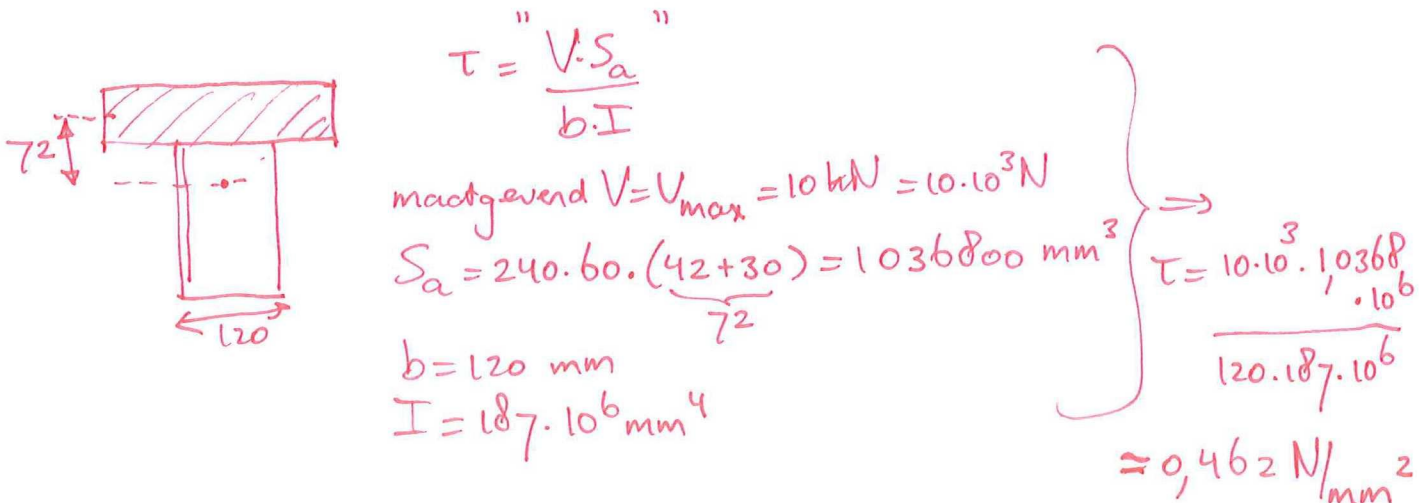 τ = "V·Sₐ"
b·I
72
120
maatgevend V = Vmax = 10 kN = 10·10³ N
Sₐ = 240·60·(42+30) = 1036800 mm³
72
b = 120 mm
I = 187·10⁶ mm⁴
⇒
τ = 10·10³·1,0368
·10⁶
120·187·10⁶
≈ 0,462 N/mm²